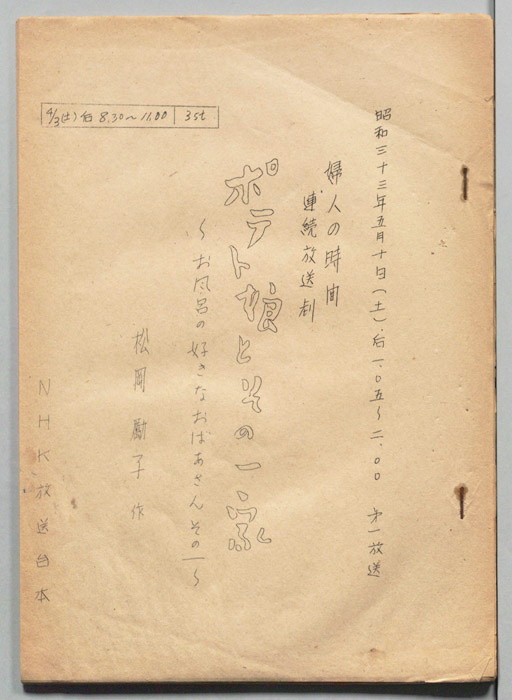 昭和三十三年五月十日(土)后一.〇五〜二.〇〇 才一放送
婦人の時間
連続放送劇
ポテト娘とその一家
〜お風呂の好きなおばあさんその一〜
松岡励子作
NHK放送台本
4/3(土)后 8.30〜11.00 3st